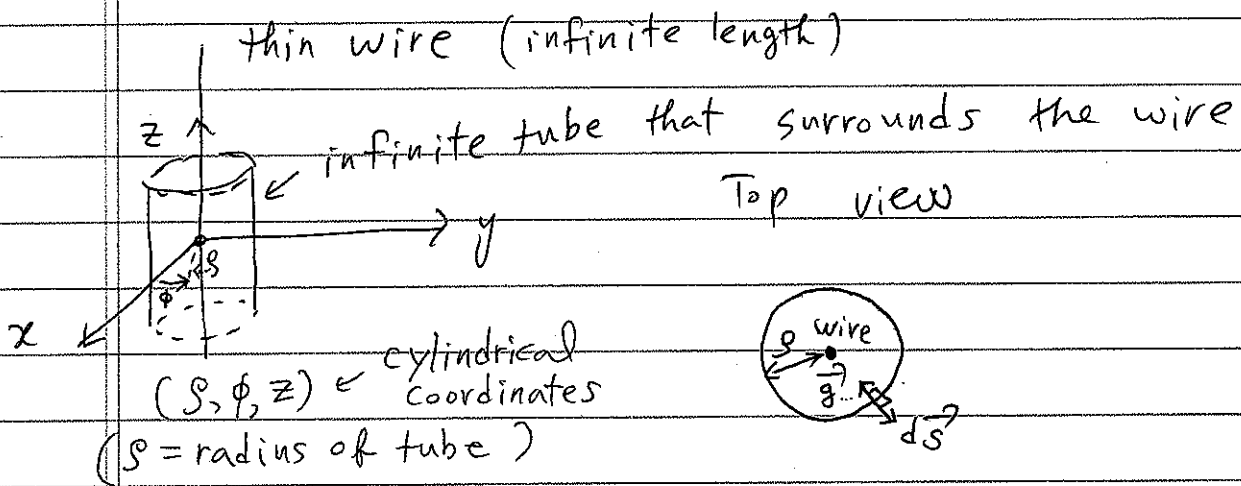 thin wire (infinite length)
z
infinite tube that surrounds the wire
Top view
y
ρ
φ
x
wire
ρ
g⃗
ds⃗
(ρ, φ, z) ← cylindrical coordinates
(ρ = radius of tube)